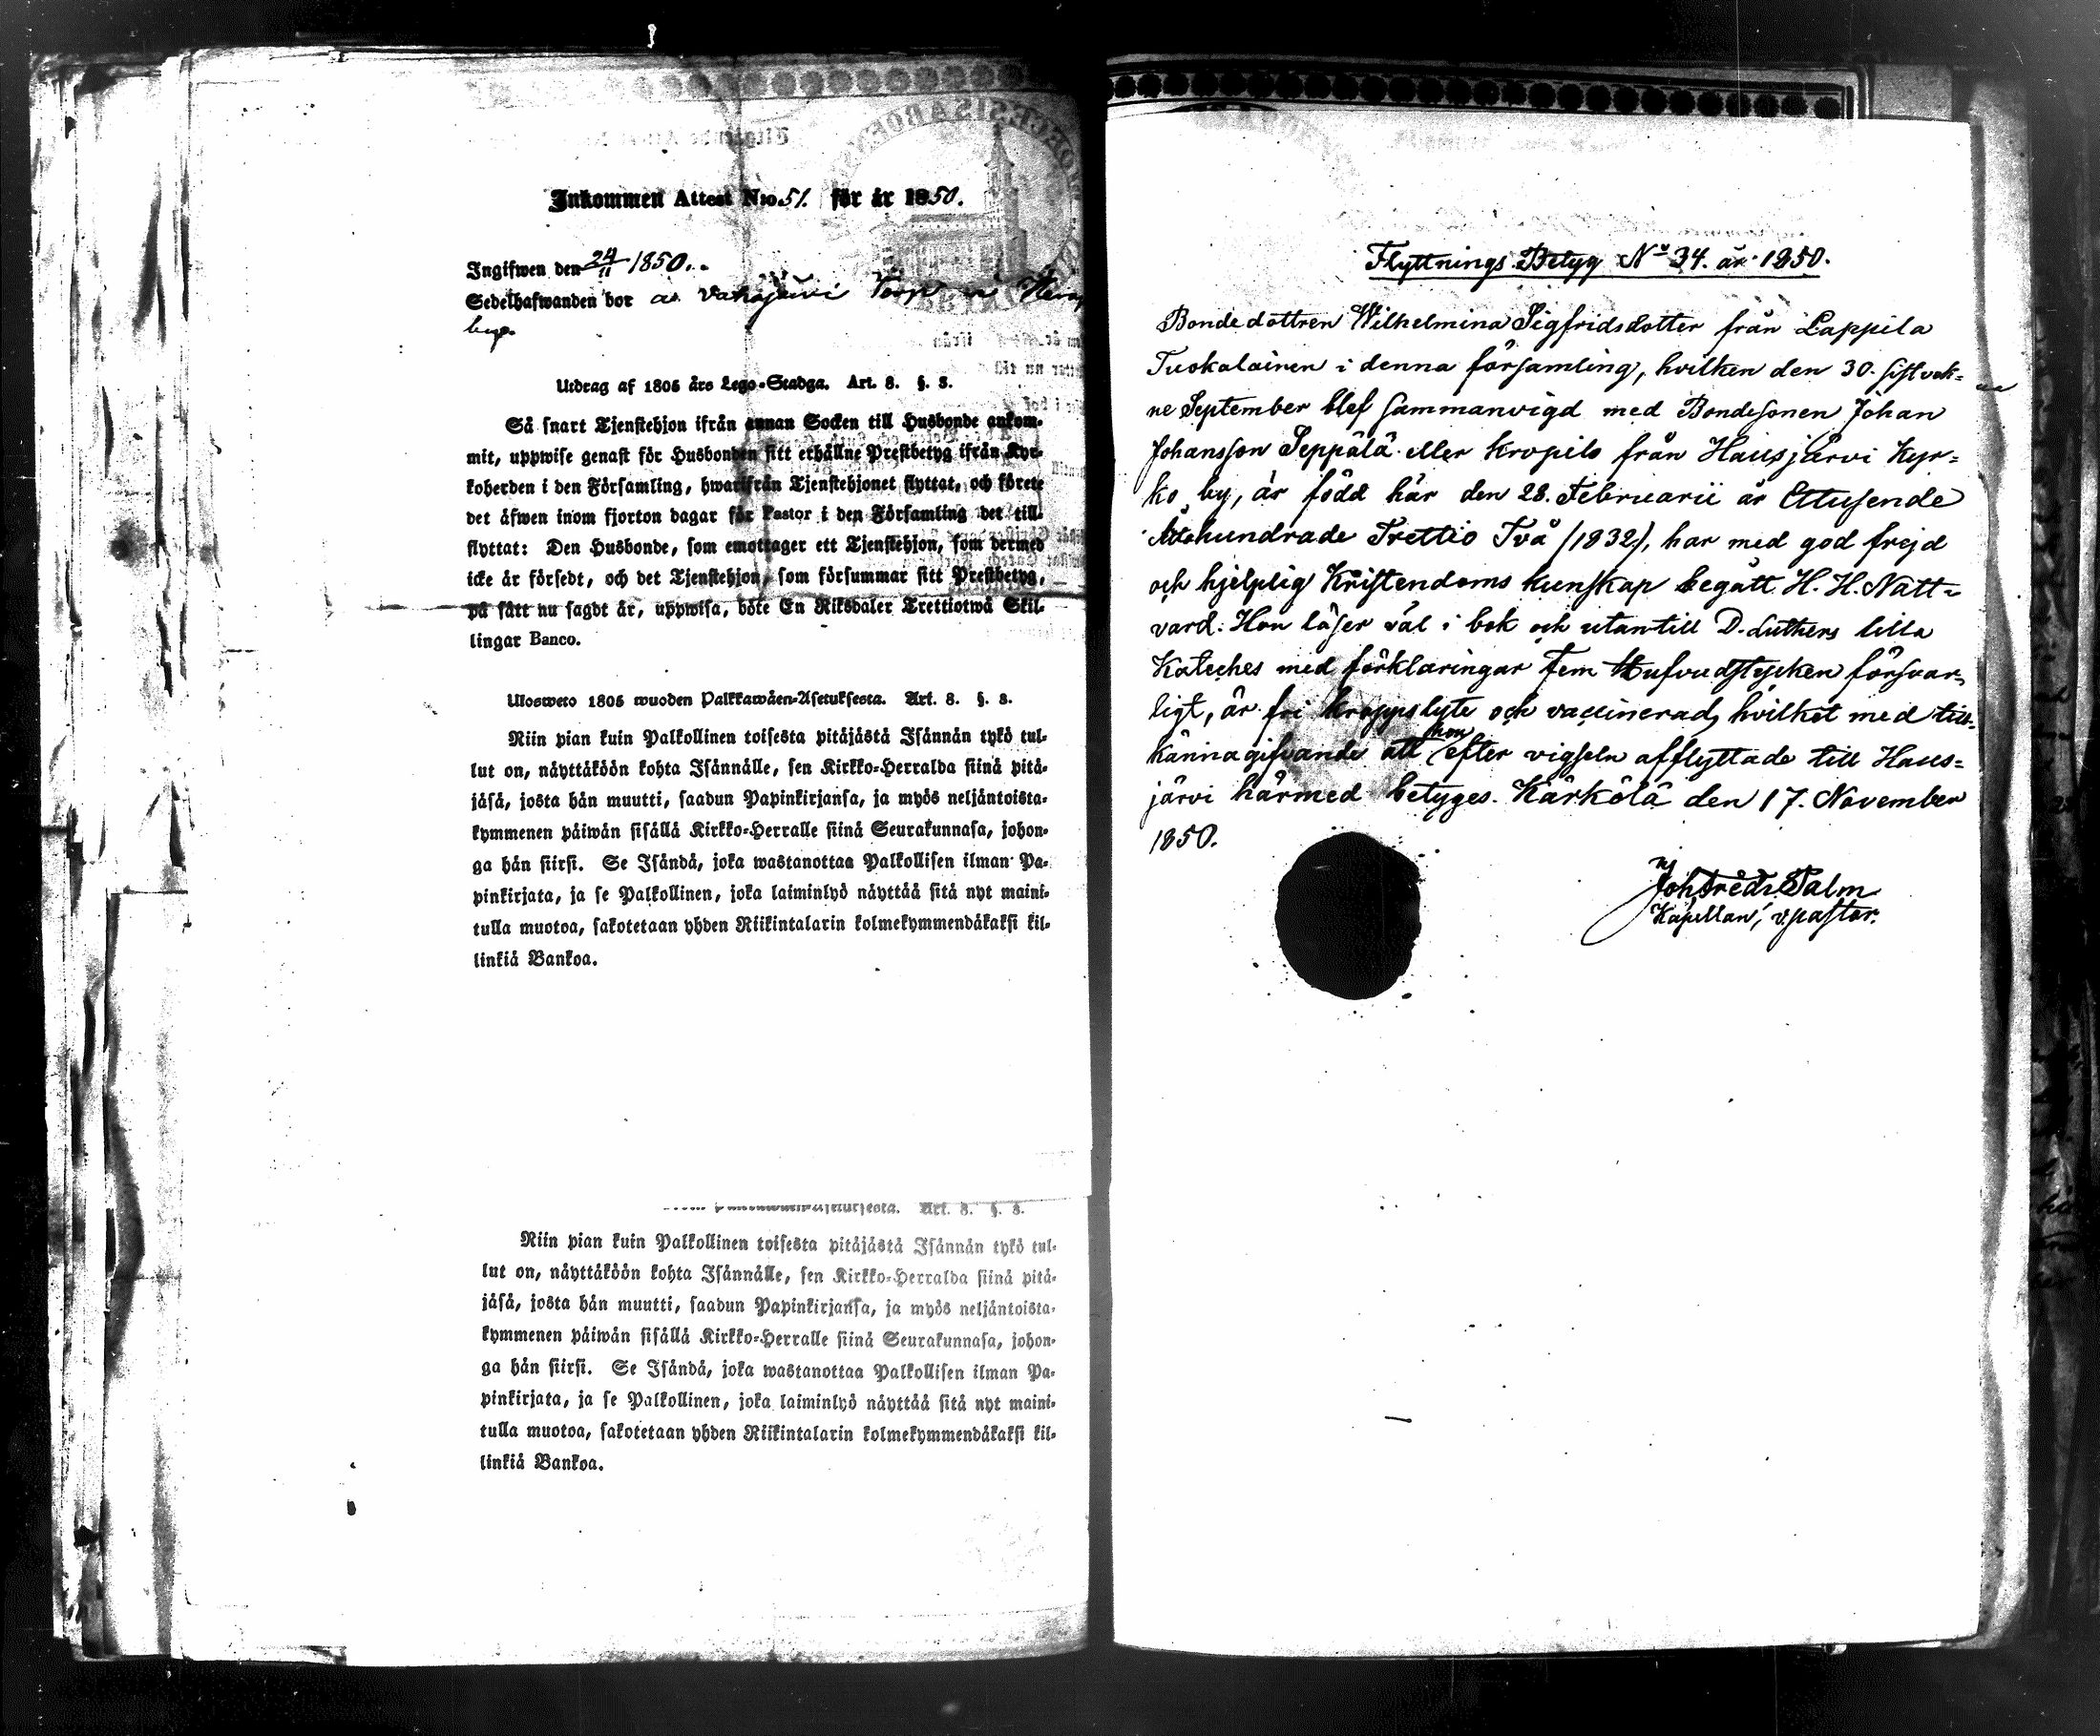 Inkommen Attest N:o 51. för år 1850.
Ingifwen den 24/11 1850.
Sedelhafwanden bor
by.
Utdrag af 1805 års Lego-Stadga. Art. 8. §. 8.
Så snart Tjenstehjon ifrån annan Socken till Husbonde ankom-
mit, uppwise genast för Husbonden sitt erhållne Prestbetyg ifrån Kyr-
koherden i den Församling, hwarifrån Tjenstehjonet flyttat, och förete
det äfwen inom fjorton dagar för Pastor i den Församling det till-
flyttat: Den Husbonde, som emottager ett Tjenstehjon, som dermed
icke är försedt, och det Tjenstehjon, som försummar sitt Prestbetyg,
på sätt nu sagdt är, uppwisa, böte En Riksdaler Trettiotwå Skil-
lingar Banco.
Ulosweto 1805 wuoden Palkkawäen-Asetuksesta. Art. 8. §. 8.
Niin pian kuin Palkollinen toisesta pitäjästä Isännän tykö tul-
lut on, näyttäköön kohta Isännälle, sen Kirkko-Herralda siinä pitä-
jäsä, josta hän muutti, saadun Papinkirjansa, ja myös neljäntoista-
kymmenen päiwän sisällä Kirkko-Herralle siinä Seurakunnasa, johon-
ga hän siirsi. Se Isändä, joka wastanottaa Palkollisen ilman Pa-
pinkirjata, ja se Palkollinen, joka laiminlyö näyttää sitä nyt maini-
tulla muotoa, sakotetaan yhden Riikintalarin kolmekymmendäkaksi kil-
linkiä Bankoa.
Art. 8. §. 8.
Niin pian kuin Palkollinen toisesta pitäjästä Isännän tykö tul-
lut on, näyttäköön kohta Isännälle, sen Kirkko-Herralda siinä pitä-
jäsä, josta hän muutti, saadun Papinkirjansa, ja myös neljäntoista-
kymmenen päiwän sisällä Kirkko-Herralle siinä Seurakunnasa, johon-
ga hän siirsi. Se Isändä, joka wastanottaa Palkollisen ilman Pa-
pinkirjata, ja se Palkollinen, joka laiminlyö näyttää sitä nyt maini-
tulla muotoa, sakotetaan yhden Riikintalarin kolmekymmendäkaksi kil-
linkiä Bankoa.
Flyttnings Betyg No 34. år 1850.
Bondedottren Wilhelmina Sigfridsdotter från Lappila
Tuokolainen i denna församling, hvilken den 30. sistvek=
ne September blef sammanvigd med Bondesonen Johan
Johansson Seppälä eller Kropilo från Hausjärvi Kyr=
ko by, är född här den 28. Februarii år Ettusende
Åttahundrade Trettio Två /1832/, har med god frejd
och hjelplig Kristendoms kunskap begått H. H. Natt=
vard. Hon läser väl i bok och utantill D. Luthers lilla
Kateches med förklaringar Fem Hufvudstycken försvar=
ligt, är fri kroppslyte och vaccinerad, hvilket med till=
kännagifvande att hon efter vigseln afflyttade till Haus=
järvi härmed betyges. Kärkölä den 17. November
1850.
Joh Fredr Palm
Kapellan, v.pastor.